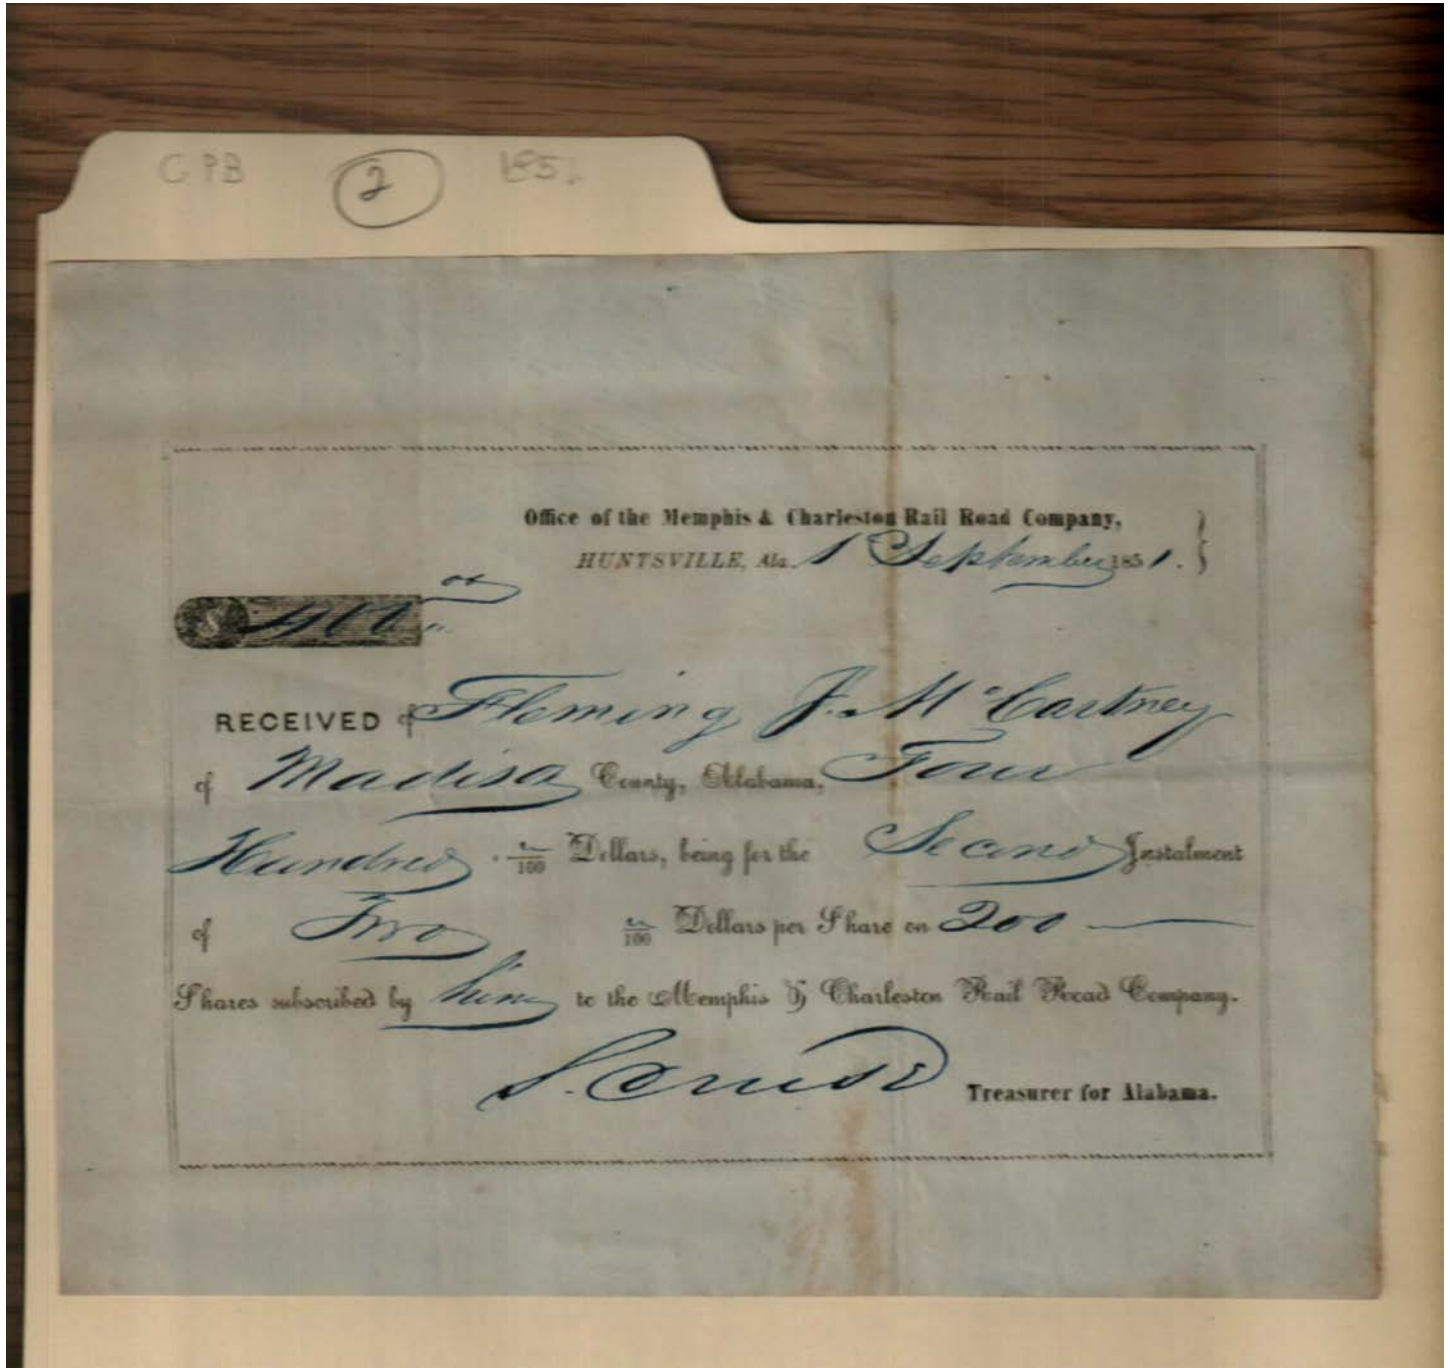 CPB 2 185
Office of the Memphis & Charleston Rail Road Company,
HUNTSVILLE, Ala. 1 September 1851.
$ 400 00
RECEIVED of Fleming J. McCartney
of Madison County, Alabama, Four
Hundred /100 Dollars, being for the Second Instalment
of Two /100 Dollars per Share on 200
Shares subscribed by him to the Memphis & Charleston Rail Road Company.
S. Cruse Treasurer for Alabama.